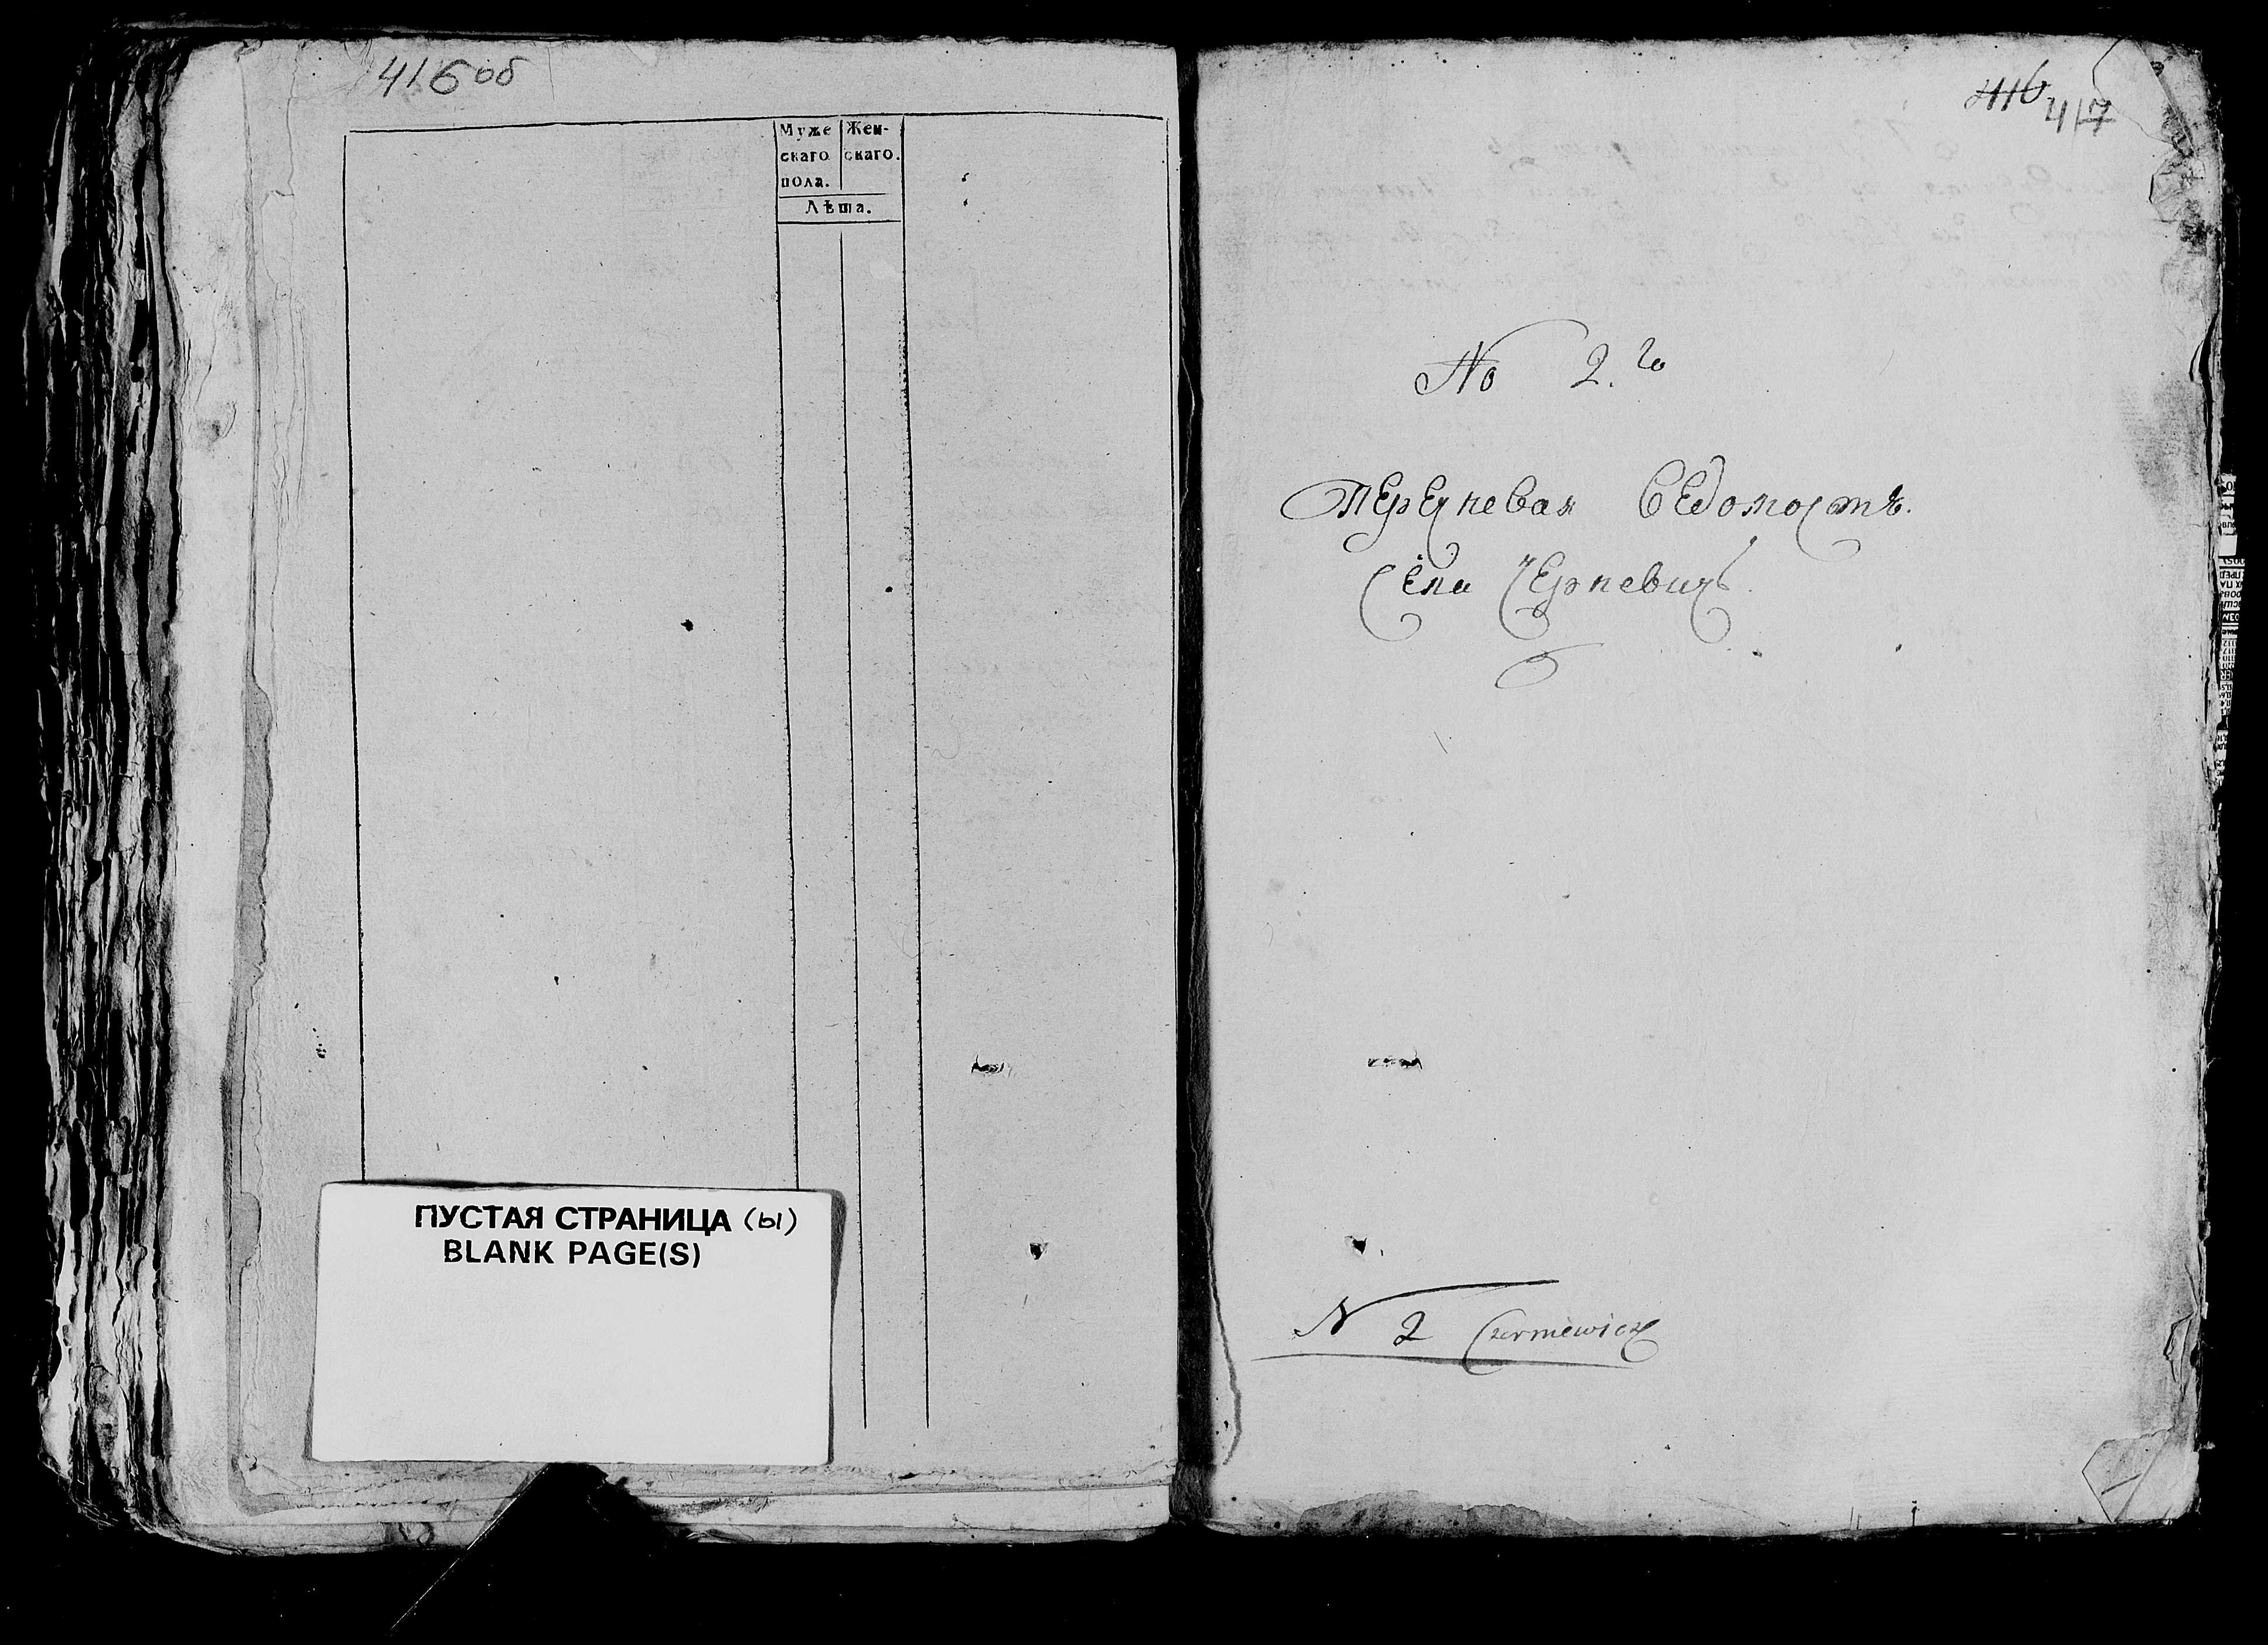 416 об
Муже Жен-
скаго скаго.
пола.
Лѣта.
ПУСТАЯ СТРАНИЦА (ы)
BLANK PAGE(S)
416 417
No 2.го
Перечневая Ведомость.
Села Черневичъ
N 2 Czerniewicze